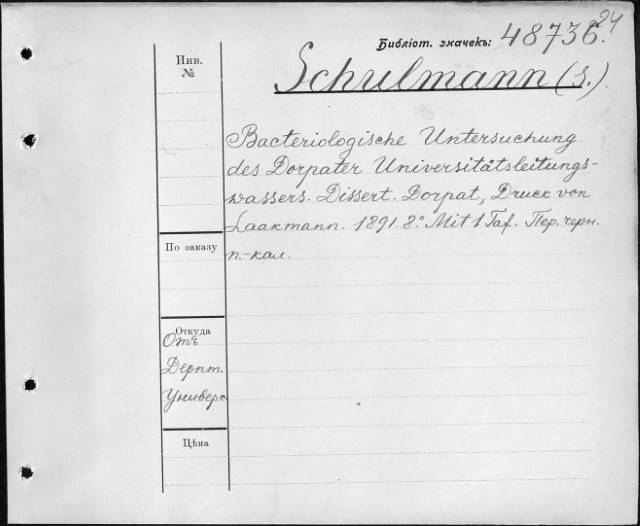 24
Библіот. значекъ: 48736.
Инв.
№
Schulmann (S.).
Bacteriologische Untersuchung
des Dorpater Universitätsleitungs-
wassers. Dissert. Dorpat, Druck von
Laakmann. 1891. 8.° Mit 1 Taf. Пер. черн.
п.-кал.
По заказу
Откуда
Отъ
Дерпт.
Универс
Цѣна